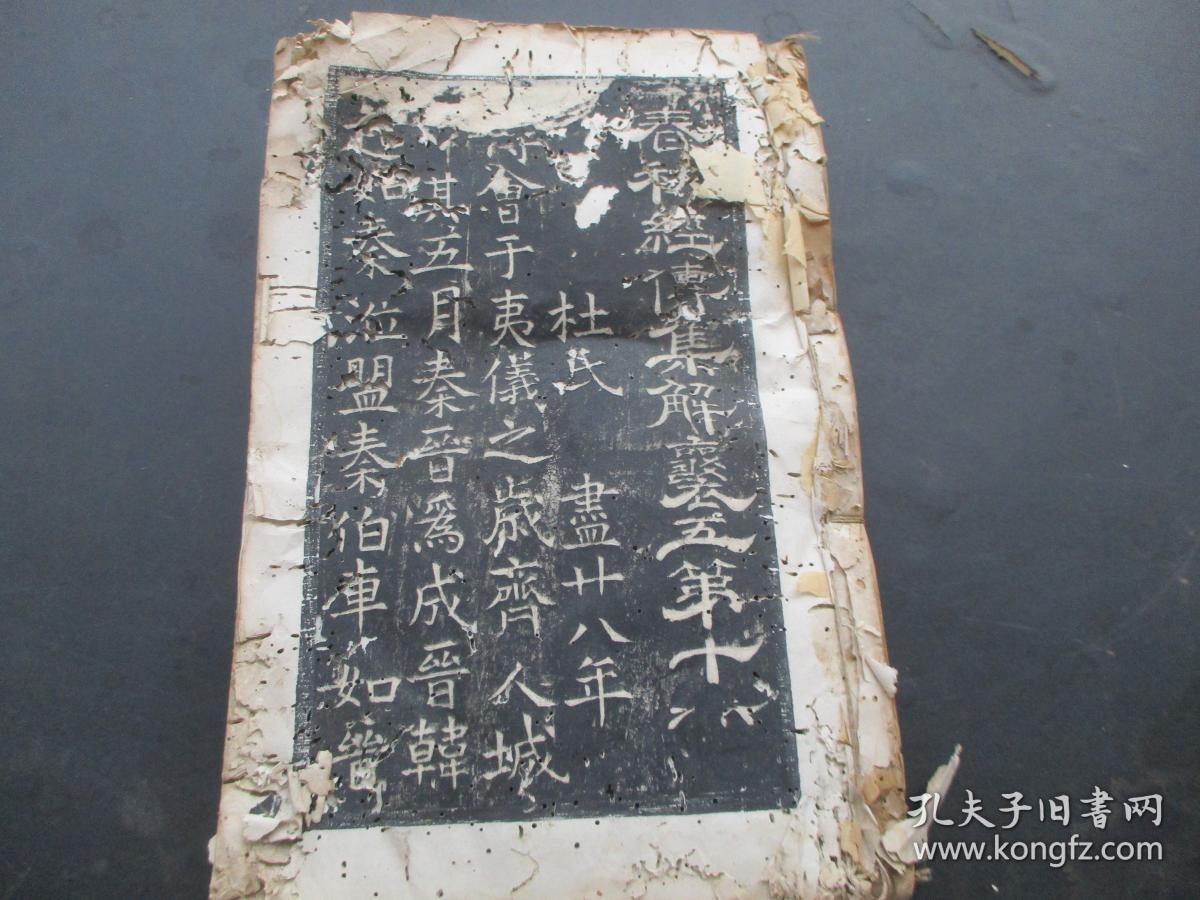 春秋經傳集解襄五第十八
杜氏 盡廿八年
會于夷儀之歲齊人城
其五月秦晉爲成晉韓
起如秦涖盟秦伯車如晉
孔夫子旧書网
www.kongfz.com